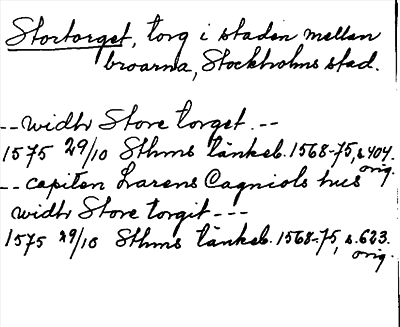 Stortorget, torg i staden mellan
broarna, Stockholms stad.
-- widhr Store torget. --
1575 29/10 Sthms tänkeb. 1568-75, s. 404.
orig.
-- capiten Larens Cagniols hus
widhr Store torgit ---
1575 29/10 Sthms tänkeb. 1568-75, s. 623.
orig.